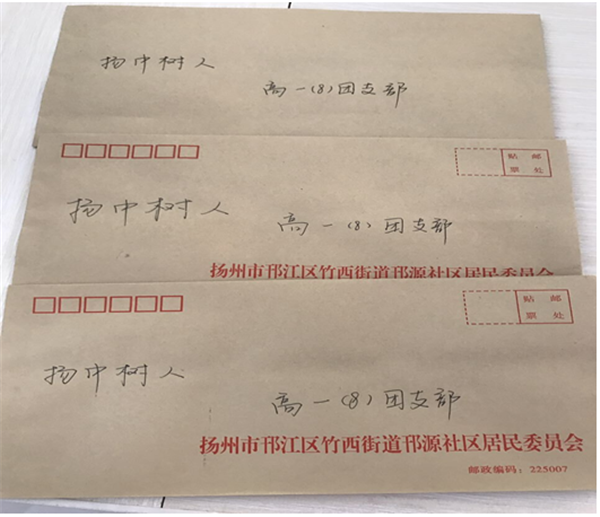 扬中树人
高一(8)团支部
贴 邮
票 处
扬中树人
高一(8)团支部
扬州市邗江区竹西街道邗源社区居民委员会
贴 邮
票 处
扬中树人
高一(8)团支部
扬州市邗江区竹西街道邗源社区居民委员会
邮政编码：225007